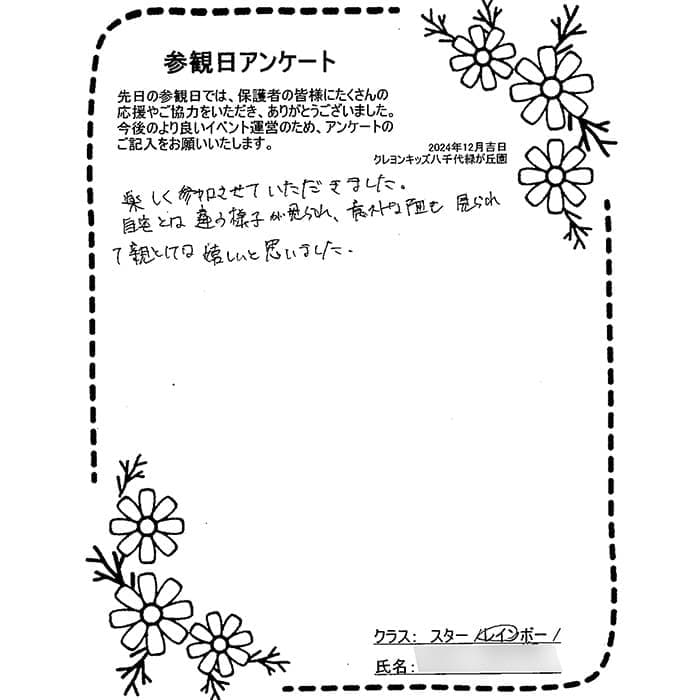 参観日アンケート
先日の参観日では、保護者の皆様にたくさんの
応援やご協力をいただき、ありがとうございました。
今後のより良いイベント運営のため、アンケートの
ご記入をお願いいたします。
2024年12月吉日
クレヨンキッズ八千代緑が丘園
楽しく参加させていただきました。
自宅とは違う様子が見られ、意外な面も見られ
て親としては嬉しいと思いました。
クラス: スター/レインボー/
氏名: